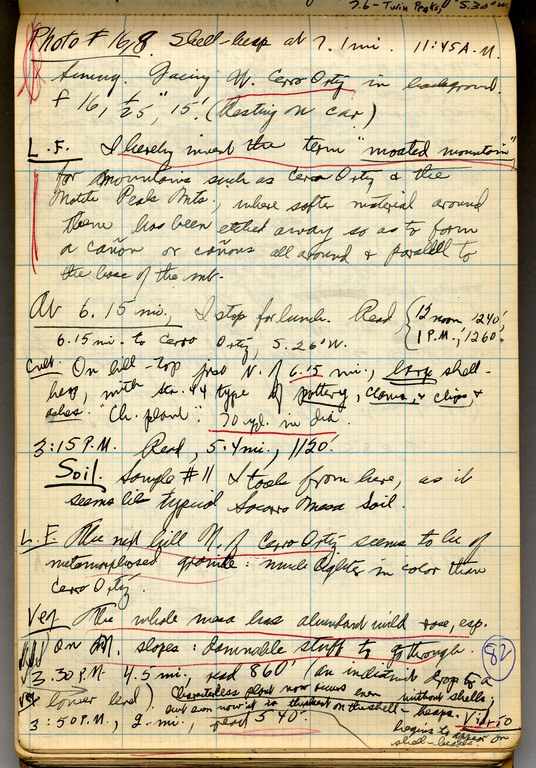 7.6 - Twin Peaks, 5.30° W.
Photo # 16/8. Shell-heap at 7.1 mi. 11:45 A.M.
Sunny. Facing N. Cerro Ortiz in background.
f 16, 1/25", 15'. (Resting on car)
L.F. I hereby invent the term "moated mountain"
for mountains such as Cerro Ortiz & the
Peak Mts., where softer material around
them has been etched away so as to form
a cañon or cañons all around & parallel to
the base of the mt.
At 6.15 mi., I stop for lunch. Read, { 12 noon 1240'
1 P.M., 1260'.
6.15 mi. to Cerro Ortiz, 5.26° W.
Cult. On hill-top just N. of 6.15 mi., large shell-
heap, with Sta. 44 type of pottery, clams, & chips, &
ashes. "Ch. plant". 70 yd. in dia.
3:15 P.M. Read, 5.4 mi., 1120'.
Soil. Sample #11 I took from here, as it
seems like typical Socorro Mesa Soil.
L.F. The next hill N. of Cerro Ortiz seems to be of
metamorphosed granite: much lighter in color than
Cerro Ortiz.
Veg. The whole mesa has abundant wild rose, esp.
on N. slopes: damnable stuff to go through.
82
3:30 P.M. 4.5 mi., read 860' (an indistinct drop to a
lower level).
Veg Characterless plant now occurs even without shells;
but even now it is thickest on the shell-heaps. Vidrio
begins to appear on
shell-heaps.
3:50 P.M., 2. mi., read 540'.